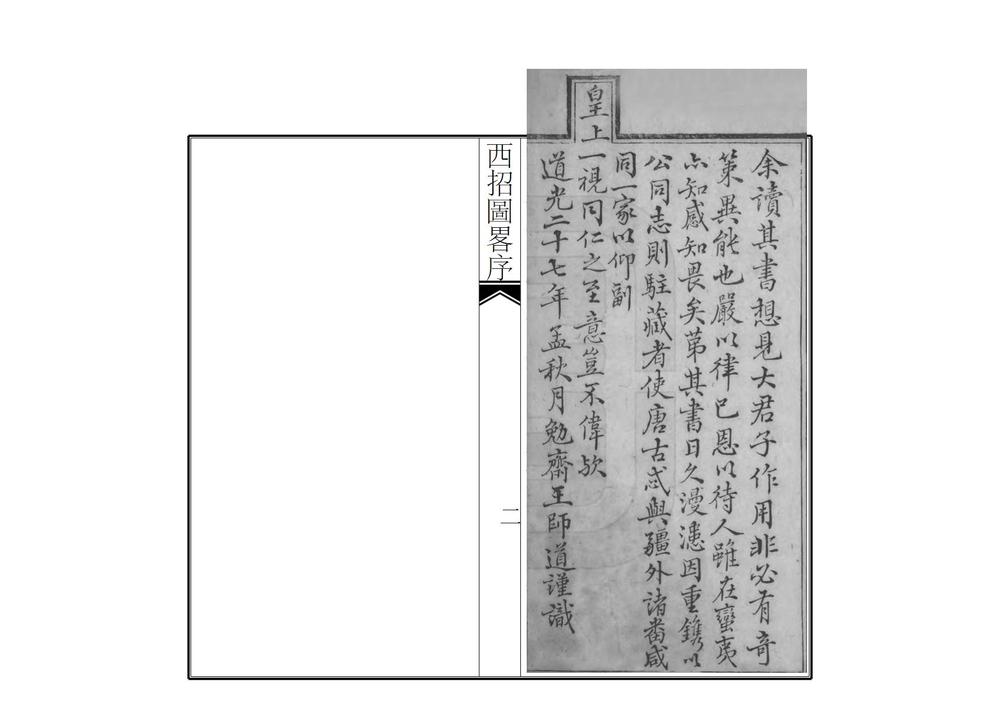 余讀其書想見大君子作用非必有奇
策異能也嚴以律己恩以待人雖在蠻夷
亦知感知畏矣苐其書日久漫漶因重鐫以
公同志則駐藏者使唐古忒與疆外諸番咸
同一家以仰副
皇上一視同仁之至意豈不偉歟
道光二十七年孟秋月勉齋王師道謹識
西招圖畧序
二